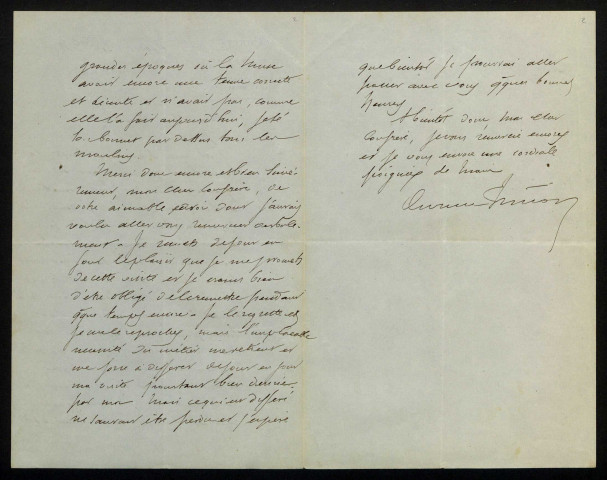 grandes époques où la Muse
avait encore une tenue correcte
et décente et n'avait pas, comme
elle l'a fait aujourd'hui, jeté
le bonnet par dessus tous les
moulins.
Merci donc encore et bien sincè-
rement, mon cher confrère, de
votre aimable envoi dont j'aurais
voulu aller vous remercier verbale-
ment. Je remets de jour en
jour le plaisir que je me promets
de cette visite et je crains bien
d'être obligé de le remettre pendant
qque temps encore. Je le regrette et
je me le reproche, mais l'implacable
nécessité du métier me retient et
me force à différer de jour en jour
ma visite pourtant bien désirée
par moi. Mais ce qui est différé
ne saurait être perdu et j'espère
que bientôt je pourrai aller
passer avec vous qques bonnes
heures.
A bientôt donc mon cher
confrère, je vous remercie encore
et je vous envoie une cordiale
poignée de main
2